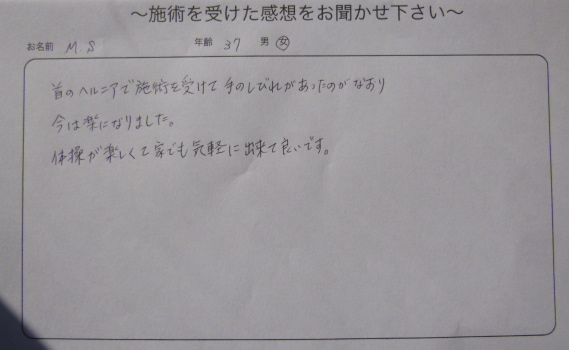 ～施術を受けた感想をお聞かせ下さい～
お名前 M.S 年齢 37 男 女
首のヘルニアで施術を受けて手のしびれがあったのがなおり
今は楽になりました。
体操が楽しくて家でも気軽に出来て良いです。